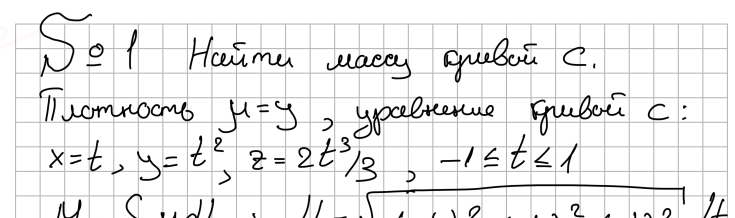 №1 Найти массу кривой C.
Плотность μ=y, уравнение кривой C:
x=t, y=t², z=2t³/3, -1≤t≤1